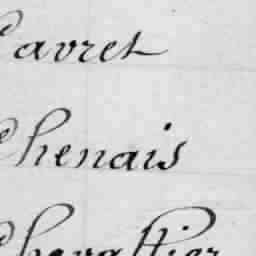 Cavret
Chenais
Chevallier